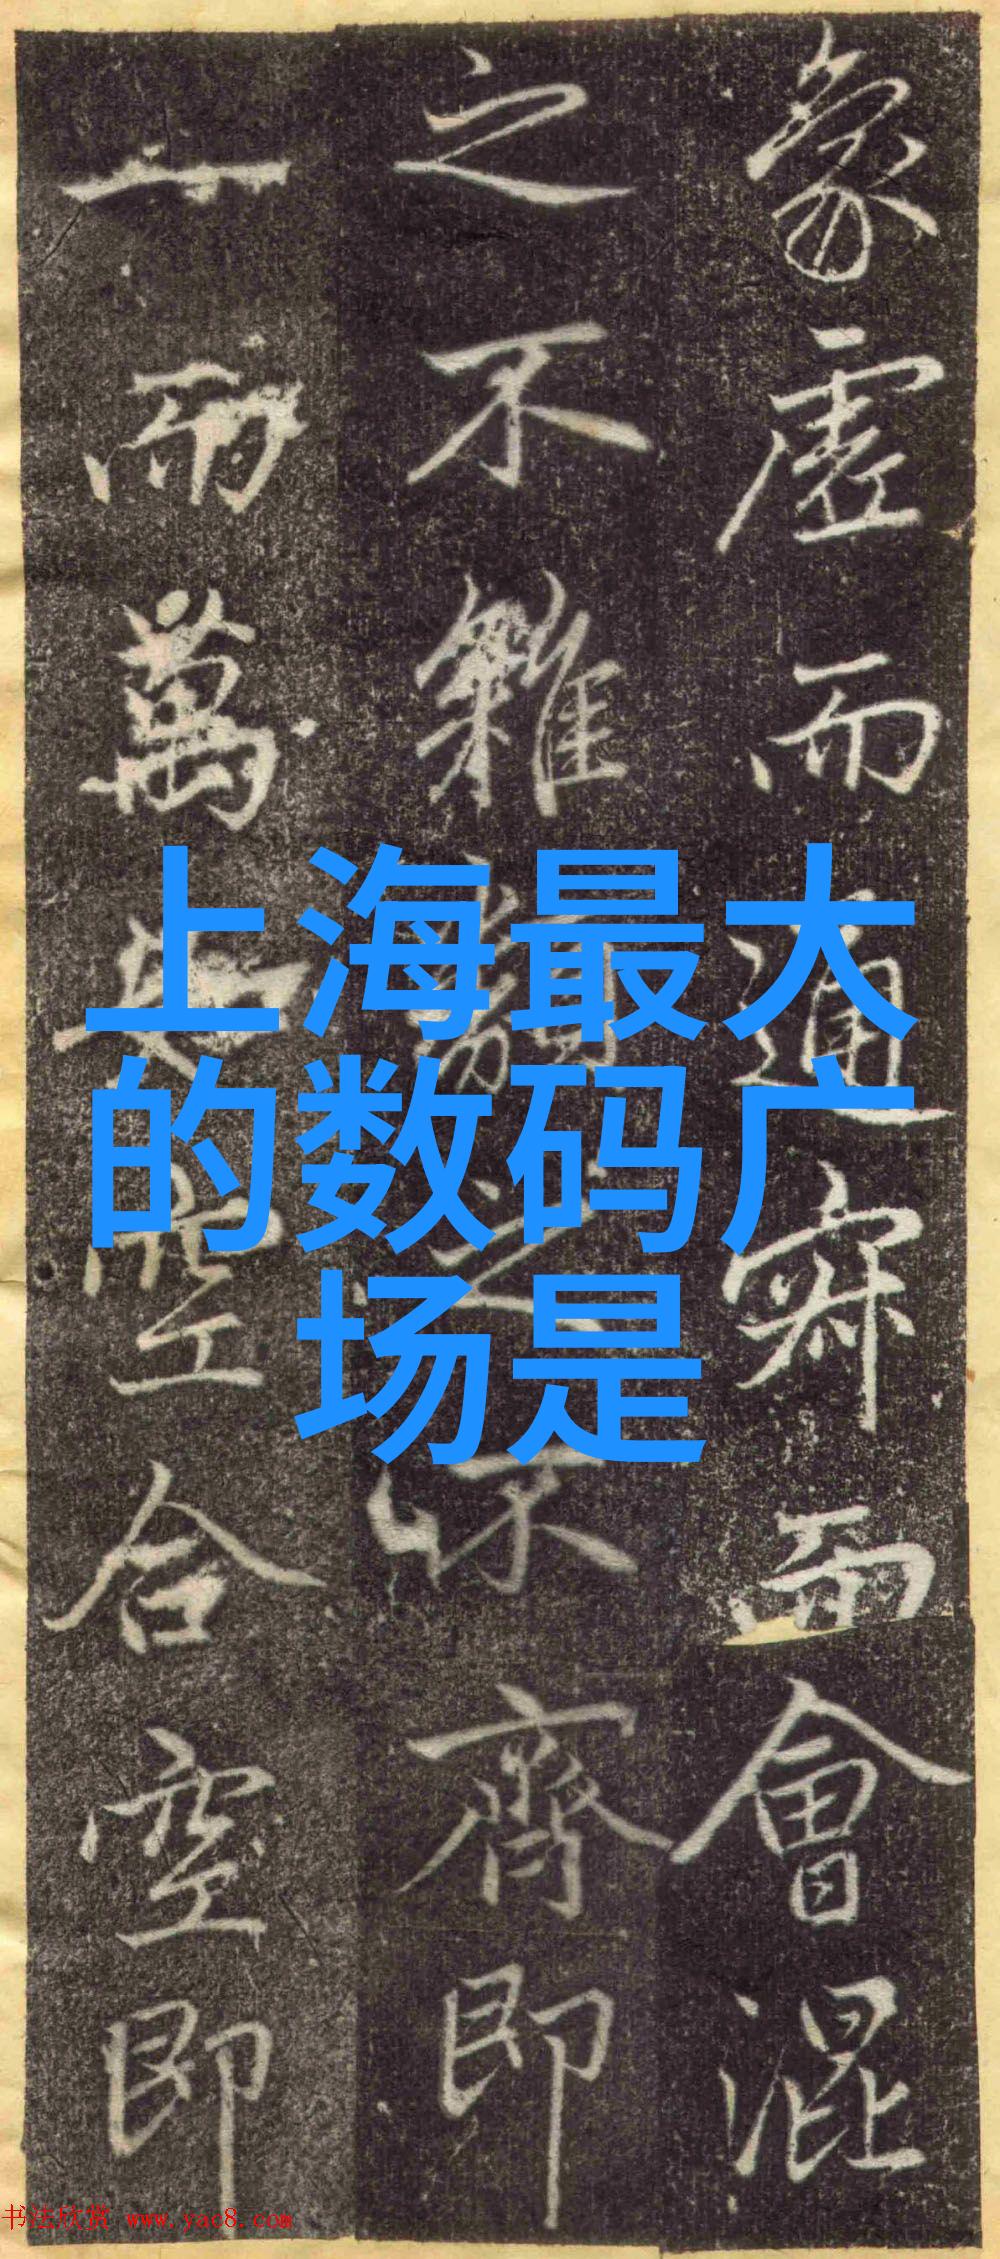 象虛而通寂而會混
之不雜之不齊即
一而萬空合空即
上海最大
的数码广
场是
书法欣赏 www.yac8.com